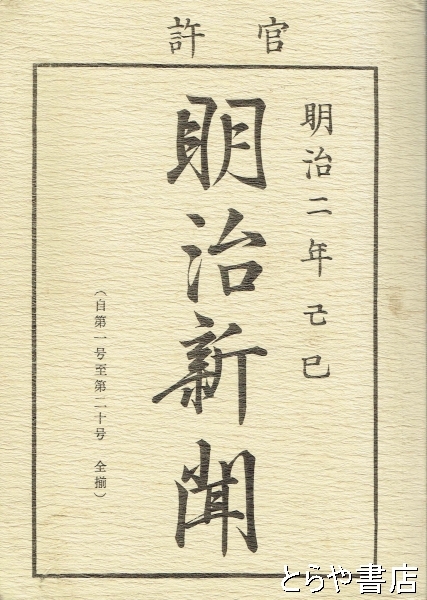 官許
明治二年己巳
明治新聞
(自第一号至第二十号 全揃)
とらや書店